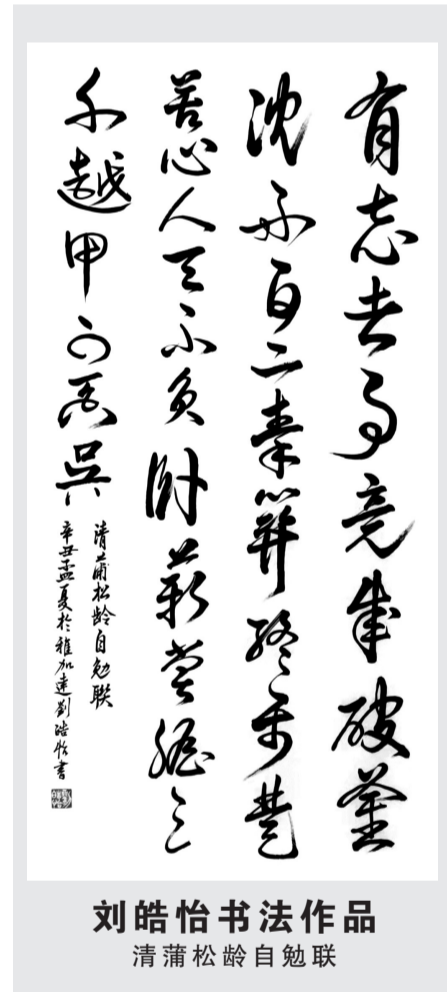 有志者事竟成破釜
沈舟百二秦關終楚
苦心人天不負臥薪嘗膽三
千越甲可吞吳
清蒲松齡自勉聯
辛丑孟夏於雅加達劉皓怡書
刘皓怡书法作品
清蒲松龄自勉联